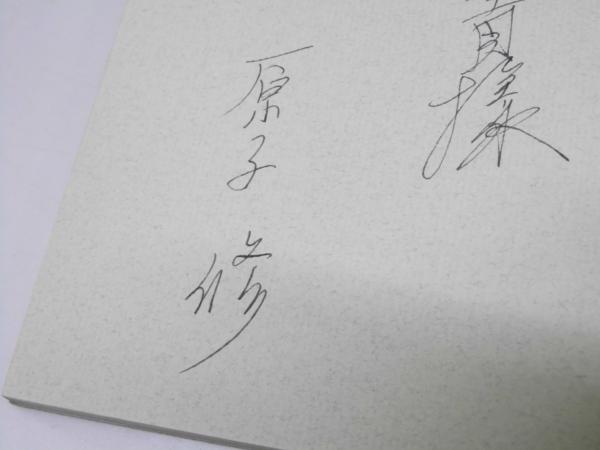 様
原子 修